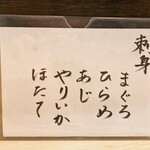 刺身
まぐろ
ひらめ
あじ
やりいか
ほたて